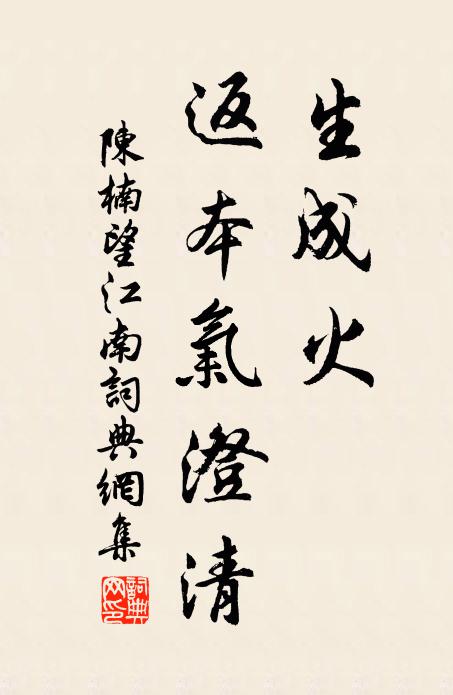 生成火
返本氣澄清
陳楠望江南詞典網集
詞典网印